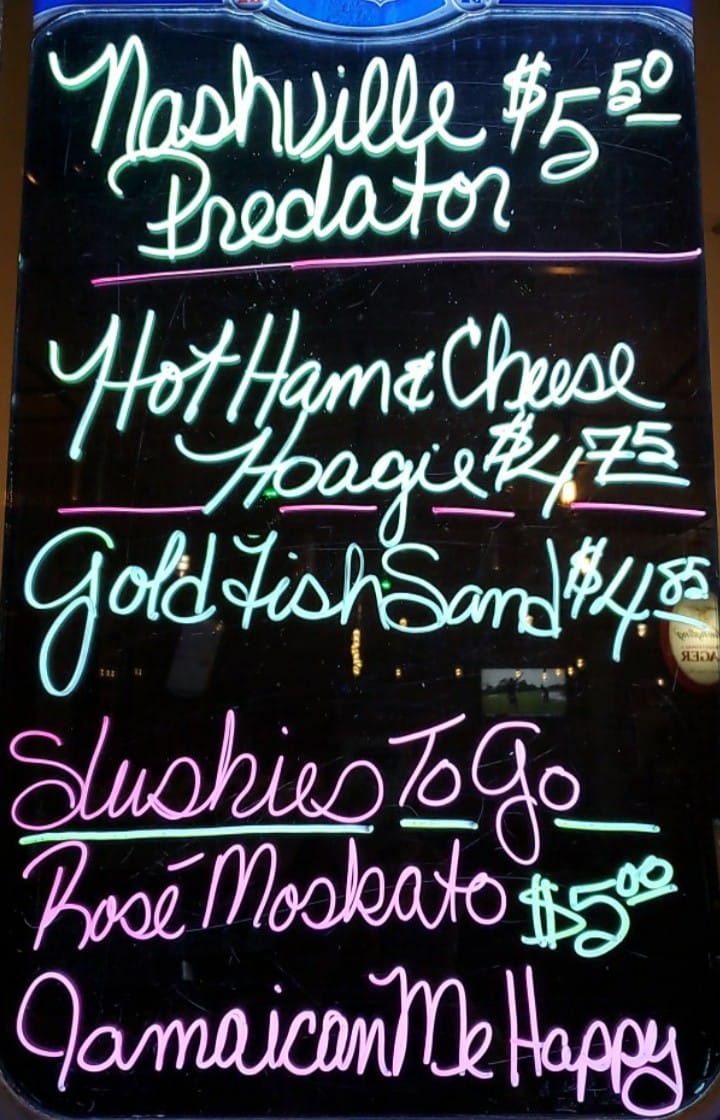 Nashville $5 50
Predator
Hot Ham & Cheese
Hoagie $4 75
Gold Fish Sand $4 85
Slushies To Go
Rosé Moskato $5 00
Jamaican Me Happy